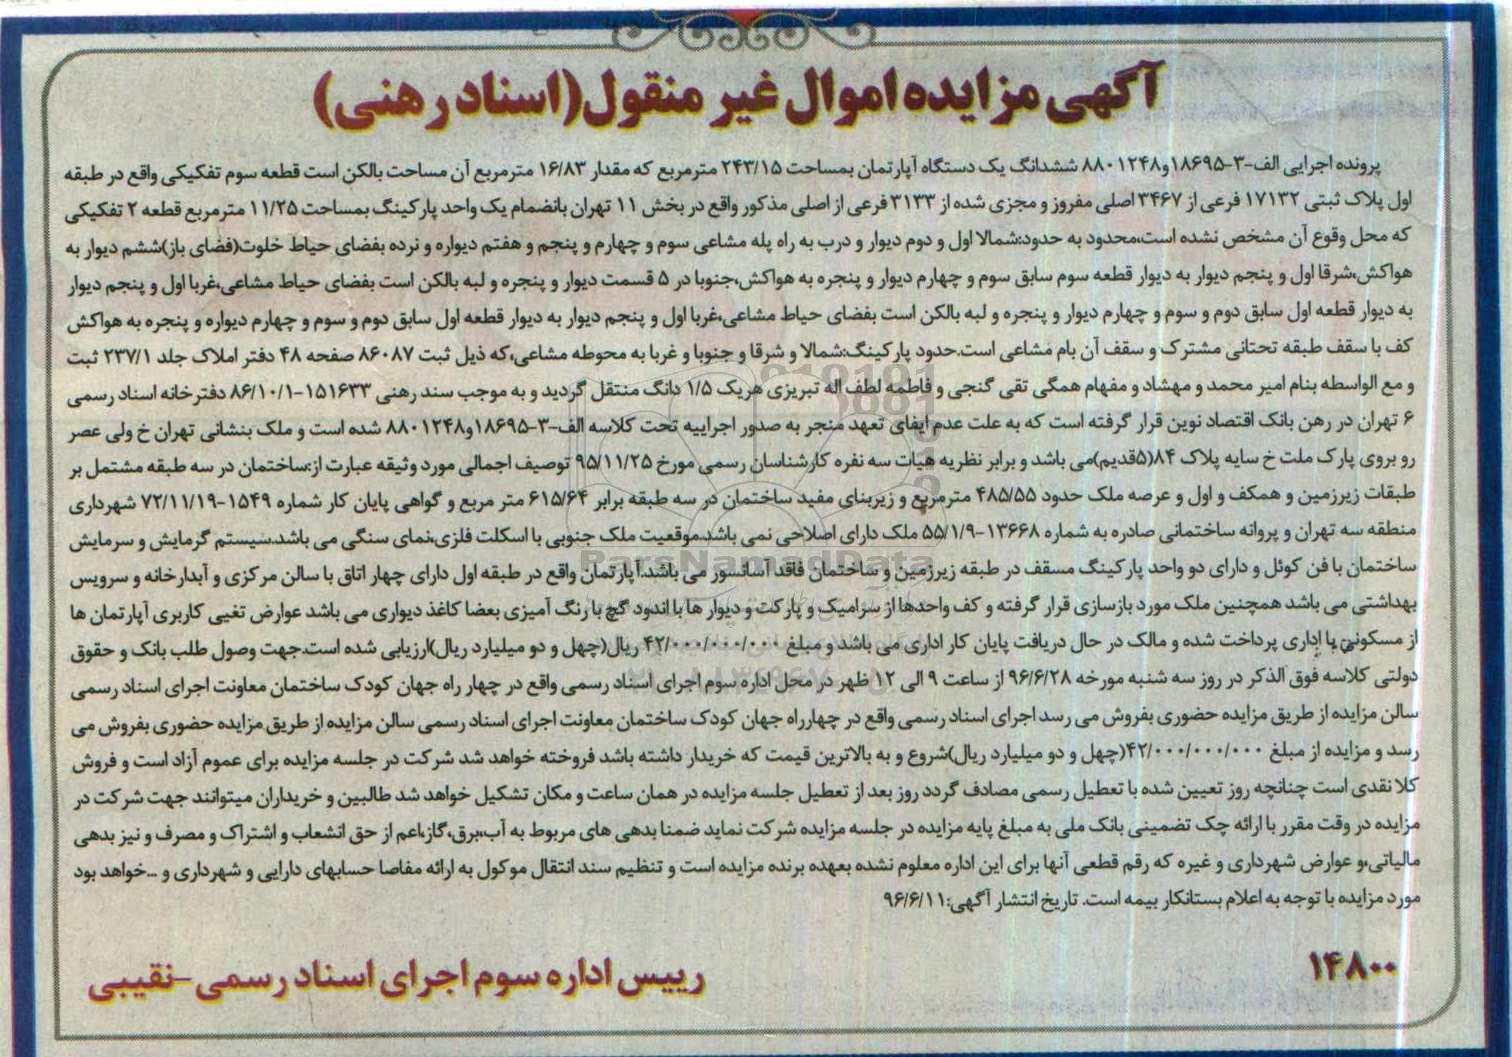 آگهی مزایده اموال غیر منقول(اسناد رهنی)
پرونده اجرایی الف-۳-۱۸۶۹۵و۸۸۰۱۲۴۸ ششدانگ یک دستگاه آپارتمان بمساحت ۲۴۳/۱۵ مترمربع که مقدار ۱۶/۸۳ مترمربع آن مساحت بالکن است قطعه سوم تفکیکی واقع در طبقه
اول پلاک ثبتی ۱۷۱۳۲ فرعی از ۳۴۶۷ اصلی مفروز و مجزی شده از ۳۱۳۳ فرعی از اصلی مذکور واقع در بخش ۱۱ تهران بانضمام یک واحد پارکینگ بمساحت ۱۱/۲۵ مترمربع قطعه ۲ تفکیکی
که محل وقوع آن مشخص نشده است،محدود به حدود:شمالا اول و دوم دیوار و درب به راه پله مشاعی سوم و چهارم و پنجم و هفتم دیواره و نرده بفضای حیاط خلوت(فضای باز)ششم دیوار به
هواکش،شرقا اول و پنجم دیوار به دیوار قطعه سوم سابق سوم و چهارم دیوار و پنجره به هواکش،جنوبا در ۵ قسمت دیوار و پنجره و لبه بالکن است بفضای حیاط مشاعی،غربا اول و پنجم دیوار
به دیوار قطعه اول سابق دوم و سوم و چهارم دیوار و پنجره و لبه بالکن است بفضای حیاط مشاعی،غربا اول و پنجم دیوار به دیوار قطعه اول سابق دوم و سوم و چهارم دیواره و پنجره به هواکش
کف با سقف طبقه تحتانی مشترک و سقف آن بام مشاعی است.حدود پارکینگ:شمالا و شرقا و جنوبا و غربا به محوطه مشاعی،که ذیل ثبت ۸۶۰۸۷ صفحه ۴۸ دفتر املاک جلد ۲۳۷/۱ ثبت
و مع الواسطه بنام امیر محمد و مهشاد و مفهام همگی تقی گنجی و فاطمه لطف اله تبریزی هریک ۱/۵ دانگ منتقل گردید و به موجب سند رهنی ۱۵۱۶۳۳-۸۶/۱۰/۱ دفترخانه اسناد رسمی
۶ تهران در رهن بانک اقتصاد نوین قرار گرفته است که به علت عدم ایفای تعهد منجر به صدور اجراییه تحت کلاسه الف-۳-۱۸۶۹۵و۸۸۰۱۲۴۸ شده است و ملک بنشانی تهران خ ولی عصر
رو بروی پارک ملت خ سایه پلاک ۸۴(۵قدیم)می باشد و برابر نظریه هیات سه نفره کارشناسان رسمی مورخ ۹۵/۱۱/۲۵ توصیف اجمالی مورد وثیقه عبارت از:ساختمان در سه طبقه مشتمل بر
طبقات زیرزمین و همکف و اول و عرصه ملک حدود ۴۸۵/۵۵ مترمربع و زیربنای مفید ساختمان در سه طبقه برابر ۶۱۵/۶۴ متر مربع و گواهی پایان کار شماره ۱۵۴۹-۷۲/۱۱/۱۹ شهرداری
منطقه سه تهران و پروانه ساختمانی صادره به شماره ۱۳۶۶۸-۵۵/۱/۹ ملک دارای اصلاحی نمی باشد.موقعیت ملک جنوبی با اسکلت فلزی،نمای سنگی می باشد.سیستم گرمایش و سرمایش
ساختمان با فن کوئل و دارای دو واحد پارکینگ مسقف در طبقه زیرزمین و ساختمان فاقد آسانسور می باشد.آپارتمان واقع در طبقه اول دارای چهار اتاق با سالن مرکزی و آبدارخانه و سرویس
بهداشتی می باشد همچنین ملک مورد بازسازی قرار گرفته و کف واحدها از سرامیک و پارکت و دیوار ها با اندود گچ با رنگ آمیزی بعضا کاغذ دیواری می باشد عوارض تغیی کاربری آپارتمان ها
از مسکونی با اداری پرداخت شده و مالک در حال دریافت پایان کار اداری می باشد و مبلغ ۴۲/۰۰۰/۰۰۰/۰۰۰ ریال(چهل و دو میلیارد ریال)ارزیابی شده است.جهت وصول طلب بانک و حقوق
دولتی کلاسه فوق الذکر در روز سه شنبه مورخه ۹۶/۶/۲۸ از ساعت ۹ الی ۱۲ ظهر در محل اداره سوم اجرای اسناد رسمی واقع در چهار راه جهان کودک ساختمان معاونت اجرای اسناد رسمی
سالن مزایده از طریق مزایده حضوری بفروش می رسد اجرای اسناد رسمی واقع در چهارراه جهان کودک ساختمان معاونت اجرای اسناد رسمی سالن مزایده از طریق مزایده حضوری بفروش می
رسد و مزایده از مبلغ ۴۲/۰۰۰/۰۰۰/۰۰۰(چهل و دو میلیارد ریال)شروع و به بالاترین قیمت که خریدار داشته باشد فروخته خواهد شد شرکت در جلسه مزایده برای عموم آزاد است و فروش
کلا نقدی است چنانچه روز تعیین شده با تعطیل رسمی مصادف گردد روز بعد از تعطیل جلسه مزایده در همان ساعت و مکان تشکیل خواهد شد طالبین و خریداران میتوانند جهت شرکت در
مزایده در وقت مقرر با ارائه چک تضمینی بانک ملی به مبلغ پایه مزایده در جلسه مزایده شرکت نماید ضمنا بدهی های مربوط به آب،برق،گاز،اعم از حق انشعاب و اشتراک و مصرف و نیز بدهی
مالیاتی،و عوارض شهرداری و غیره که رقم قطعی آنها برای این اداره معلوم نشده بعهده برنده مزایده است و تنظیم سند انتقال موکول به ارائه مفاصا حسابهای دارایی و شهرداری و ...خواهد بود
مورد مزایده با توجه به اعلام بستانکار بیمه است. تاریخ انتشار آگهی:۹۶/۶/۱۱
۱۴۸۰۰
رییس اداره سوم اجرای اسناد رسمی-نقیبی
ParsNamadData